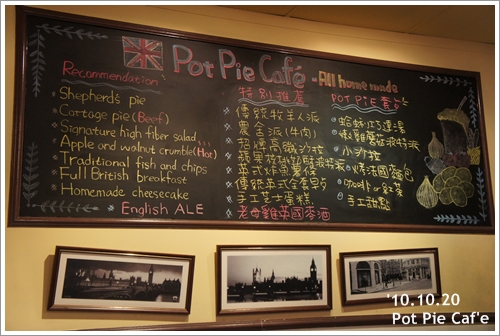 Pot Pie Café - All home made
Recommendation
Shepherd's pie
Cottage pie (Beef)
Signature high fiber salad
Apple and walnut crumble (Hot)
Traditional fish and chips
Full British breakfast
Homemade cheesecake
English ALE
特別推薦
傳統牧羊人派
農舍派(牛肉)
招牌高纖沙拉
英式炸魚薯條
傳統英式全套早餐
手工芝士蛋糕
老母雞英國麥酒
POT PIE 套餐
小沙拉
手工甜點
'10.10.20
Pot Pie Caf'e